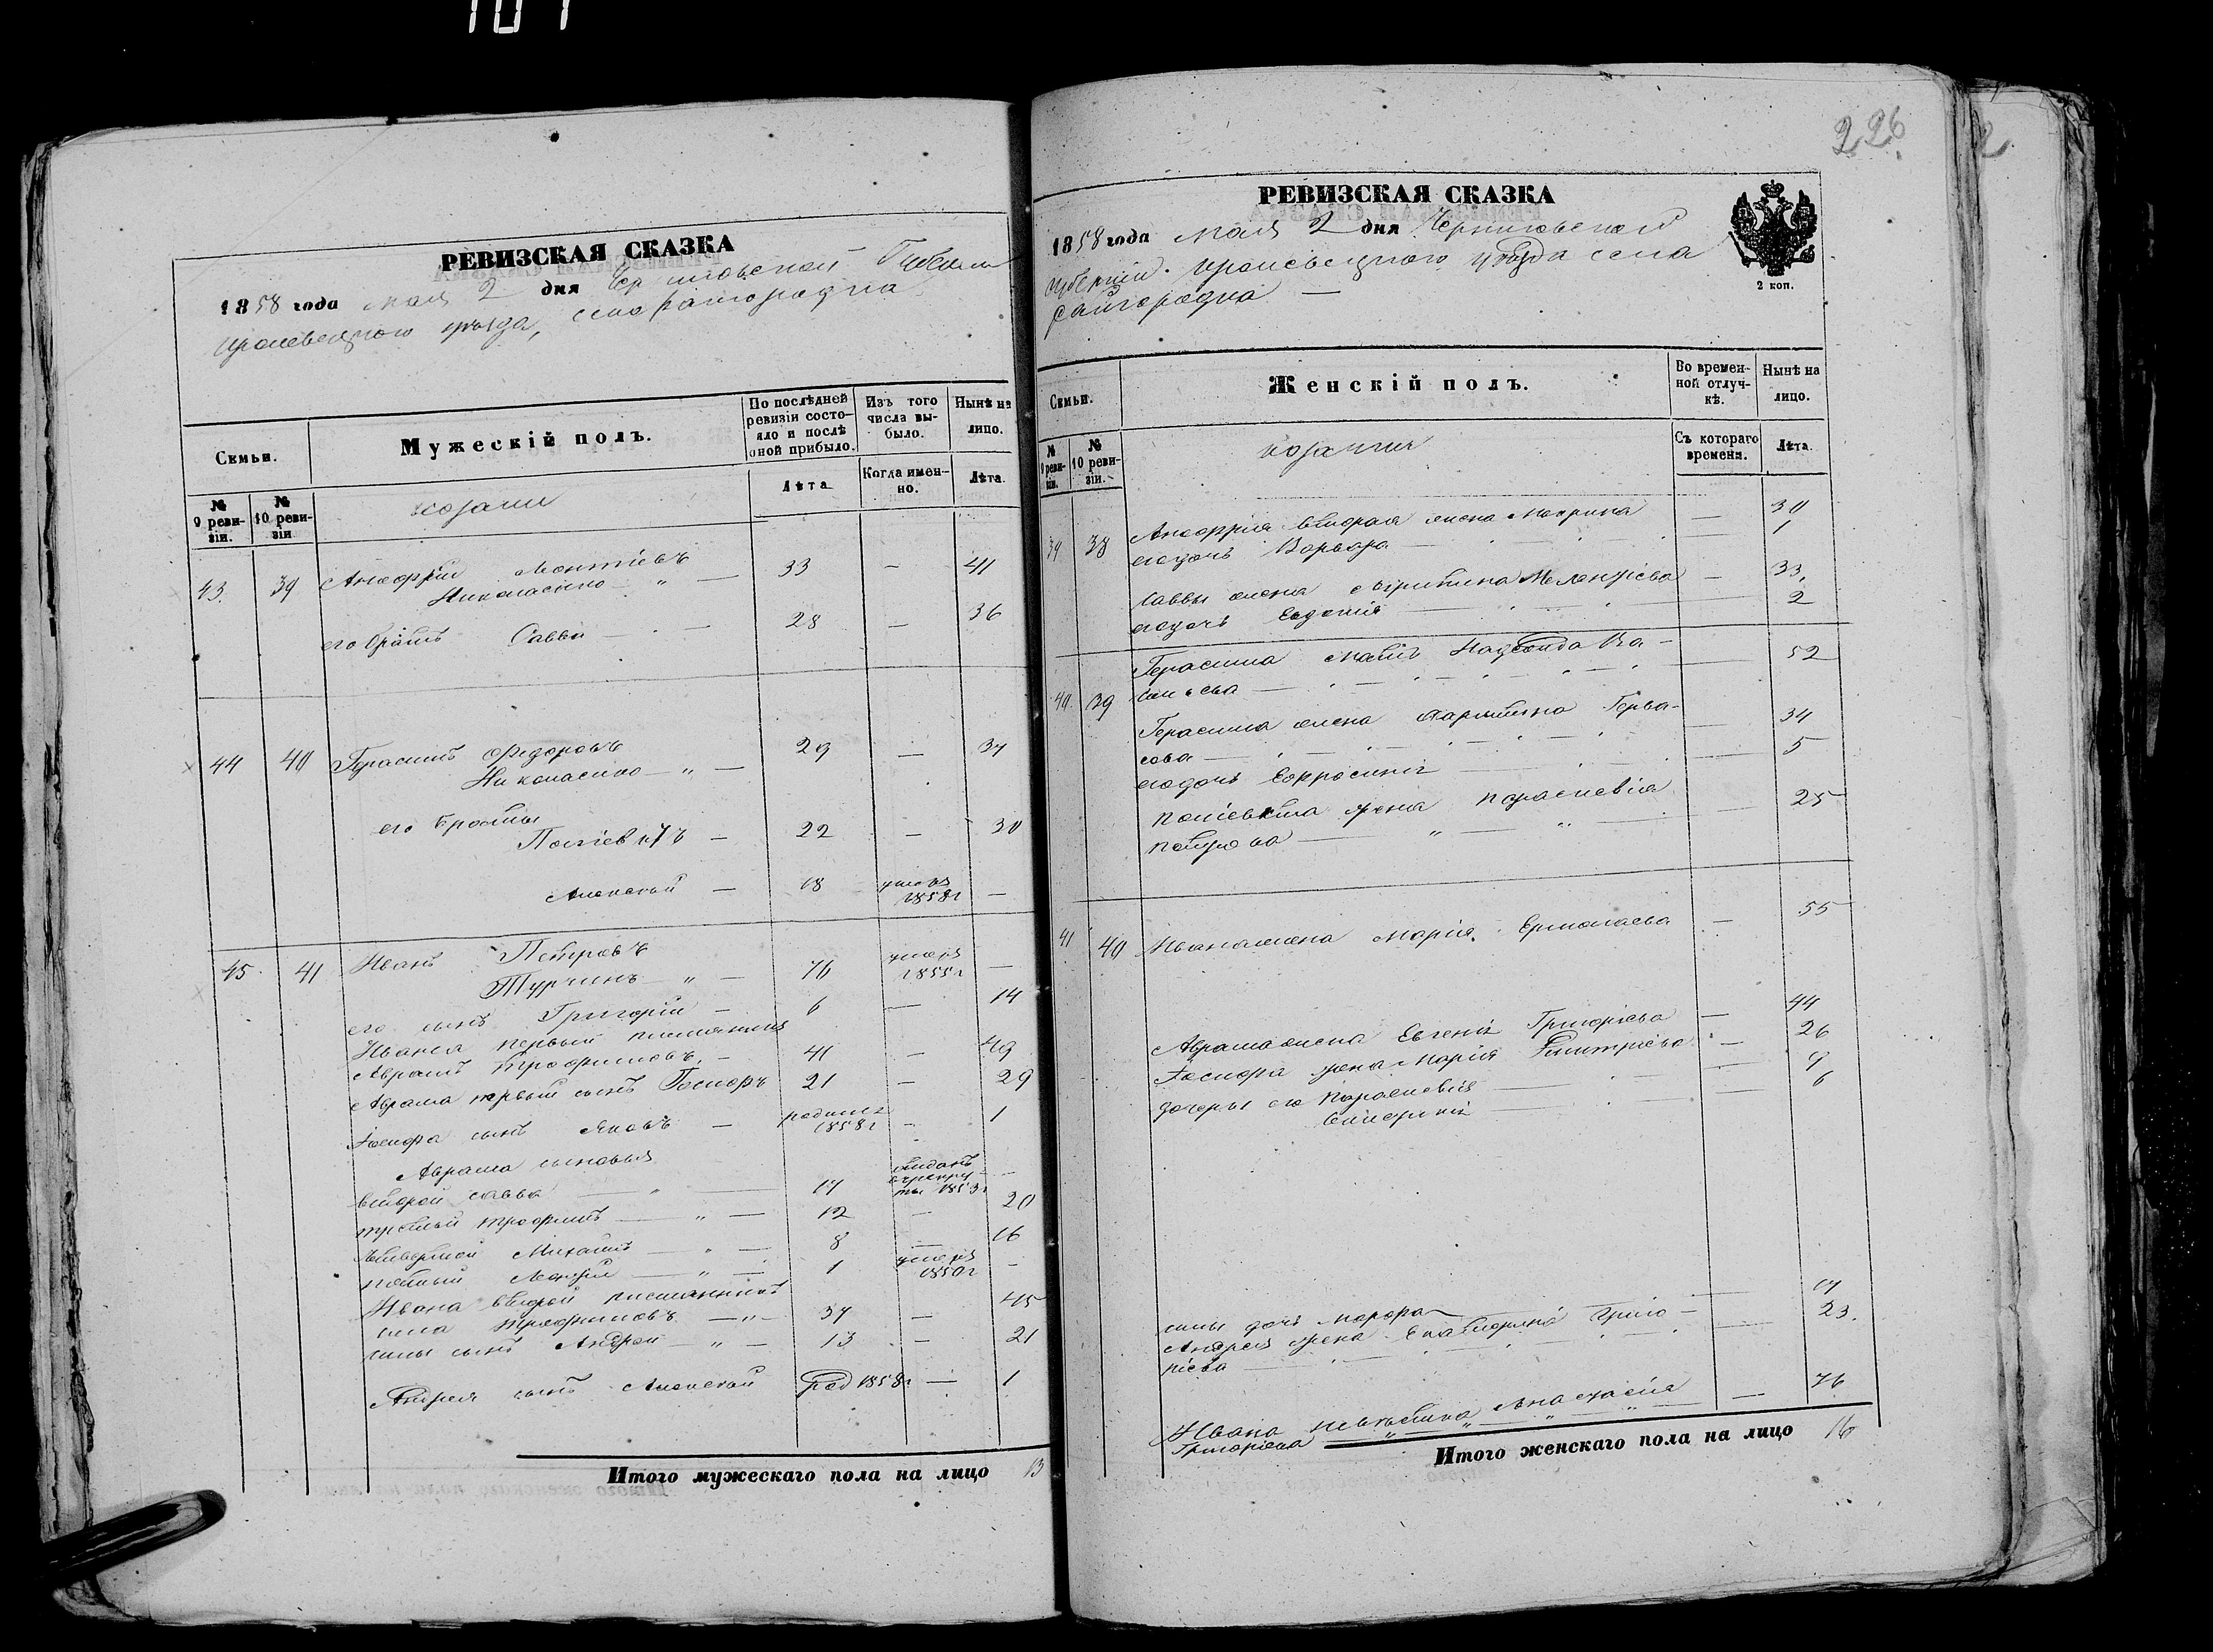 РЕВИЗСКАЯ СКАЗКА
1858 года мая 2 дня Черниговской Губернии
Кролевецкого уезда, села Райгородка
Семьи.
Мужескій полъ.
По послѣдней ревизіи состояло и послѣ оной прибыло.
Изъ того числа выбыло.
Нынѣ на лицо.
№ 9 ревизіи.
№ 10 ревизіи
козаки
Лѣта
Когда именно.
Лѣта.
43. 39 Леонтіевъ 33 — 41
Николаенко — „ —
его братъ Савва — 28 — 36
44 40 Герасимъ Федоровъ 29 — 37
Николаенко — „ —
его братья
Поліевктъ — 22 — 30
Алексей — 18 умеръ 1858г —
45. 41 Иванъ Петровъ
Турчинъ „ — 76 умеръ 1855г —
его сынъ Григорій — 6 — 14
Ивана первый племянникъ
Аврамъ Трофимовъ. — 41 — 49
Аврама первый сынъ 21 — 29
сынъ Яковъ — родился 1858г — 1
Аврама сыновья
второй Савва — „ — 17 отданъ в рекруты 1853г —
третий Трофимъ — „ — 12 — 20
Михаилъ — „ — 8 — 16
пятый — „ — 1 умеръ 1850г —
Ивана второй племянникъ
Трофимовъ — „ — 37 — 45
сынъ Андрей — „ — 13 — 21
Андрея сынъ Алексей род 1858г — 1
Итого мужескаго пола на лицо 13
226
РЕВИЗСКАЯ СКАЗКА
1858 года мая 2 дня Черниговской
губернии Кролевецкого уезда села
Райгородка —
2 коп.
Семьи.
Женскій полъ.
Во временной отлучкѣ.
Нынѣ на лицо.
№ 9 ревизіи.
№ 10 ревизіи.
Съ котораго времени.
Лѣта.
39 38 вторая жена —
его дочь Варвара — — 1
Саввы жена — 33.
его дочь Евдокия — 2
40. 39 Герасима мать Ва-
сильева — — 52
Герасима жена Герва-
сова — — 34
его дочь Ефросиния — 5
Поліевкта жена Параскевія
Петрова — „ — „ — 25
41 40 Ивана жена Марія Ермолаева — 55
Аврама жена Евгенія Григорьева — 44
жена Марія Дмитріева — 26
дочери его Параскевія — 9
— 6
дочь — 17
Андрея жена Екатерина Григо-
ріева — — 23.
Ивана Анастасія
Григоріева „ — „ — „ — 76
Итого женскаго пола на лицо 16